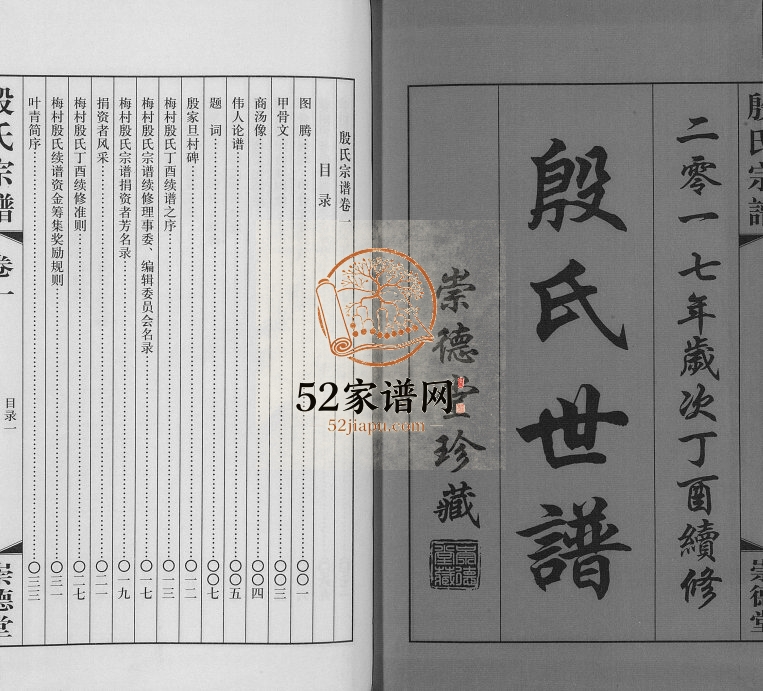 二零一七年歲次丁酉續修
殷氏世譜
崇德堂珍藏
殷氏宗譜
崇德堂
殷氏宗谱卷一
目录
图腾 〇〇一
甲骨文 〇〇三
商汤像 〇〇四
伟人论谱 〇〇五
题词 〇〇七
殷家旦村碑 〇一二
梅村殷氏丁酉续谱之序 〇一三
梅村殷氏宗谱续修理事委、编辑委员会名录 〇一七
梅村殷氏宗谱捐资者芳名录 〇一九
捐资者风采 〇二一
梅村殷氏丁酉续修准则 〇二七
梅村殷氏续谱资金筹集奖励规则 〇三一
叶青简序 〇三三
殷氏宗譜
卷一
目录一
崇德堂
52家谱网
52jiapu.com